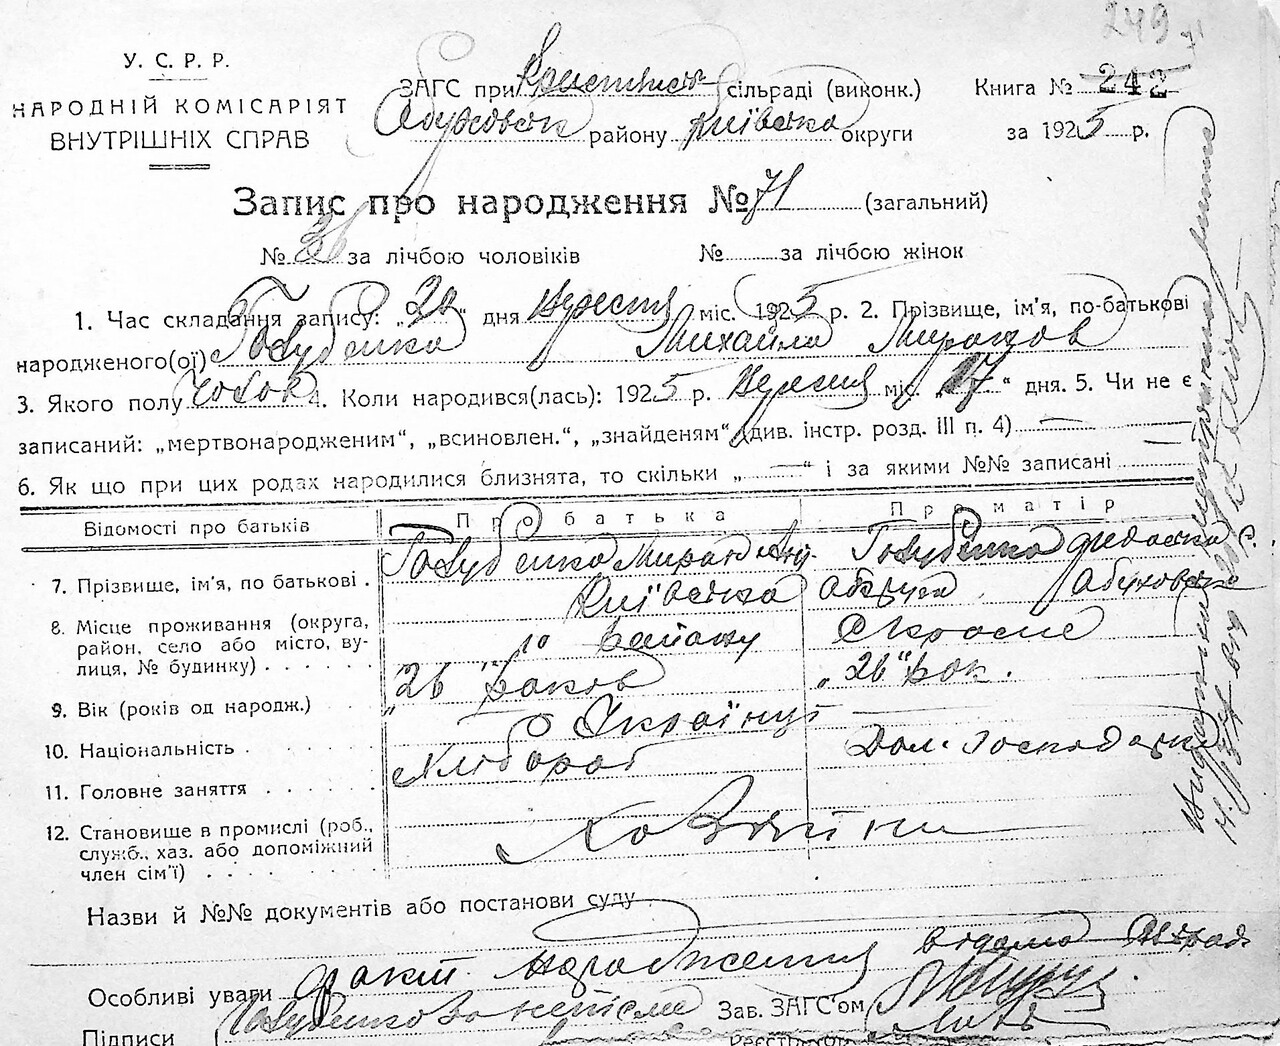 249
71
У. С. Р. Р.
НАРОДНІЙ КОМІСАРІЯТ
ВНУТРІШНІХ СПРАВ
ЗАГС при сільраді (виконк.)
району Київська округи
Книга № 242
за 1925 р.
Запис про народження № 71 (загальний)
№ 36 за лічбою чоловіків № за лічбою жінок
1. Час складання запису: „ “ дня Вересня міс. 1925 р. 2. Прізвище, ім'я, по-батькові
народженого(ої) Голубенко Михайло Миронов
3. Якого полу чолов 4. Коли народився(лась): 1925 р. Вересня міс. „17“ дня. 5. Чи не є
записаний: „мертвонародженим“, „всиновлен.“, „знайденям“ (див. інстр. розд. III п. 4)
6. Як що при цих родах народилися близнята, то скільки „ — “ і за якими №№ записані
Відомості про батьків
Про батька
Про матір
7. Прізвище, ім'я, по батькові .
Голубенко Мирон Анд.
Голубенко Федоська С.
8. Місце проживання (округа,
район, село або місто, ву-
лиця, № будинку)
Київська округа Абуховсько
го району с Красне
9. Вік (років од народж.)
„26“ років
„26“ рок.
10. Національність
Українці
11. Головне заняття
хлібороб
Дом. господарка
12. Становище в промислі (роб.,
служб., хаз. або допоміжний
член сім'ї)
Хозяйни
Назви й №№ документів або постанови суду
Особливі уваги факт народження відомо
Підписи Голубенко
Зав. ЗАГС'ом
Реєстратор